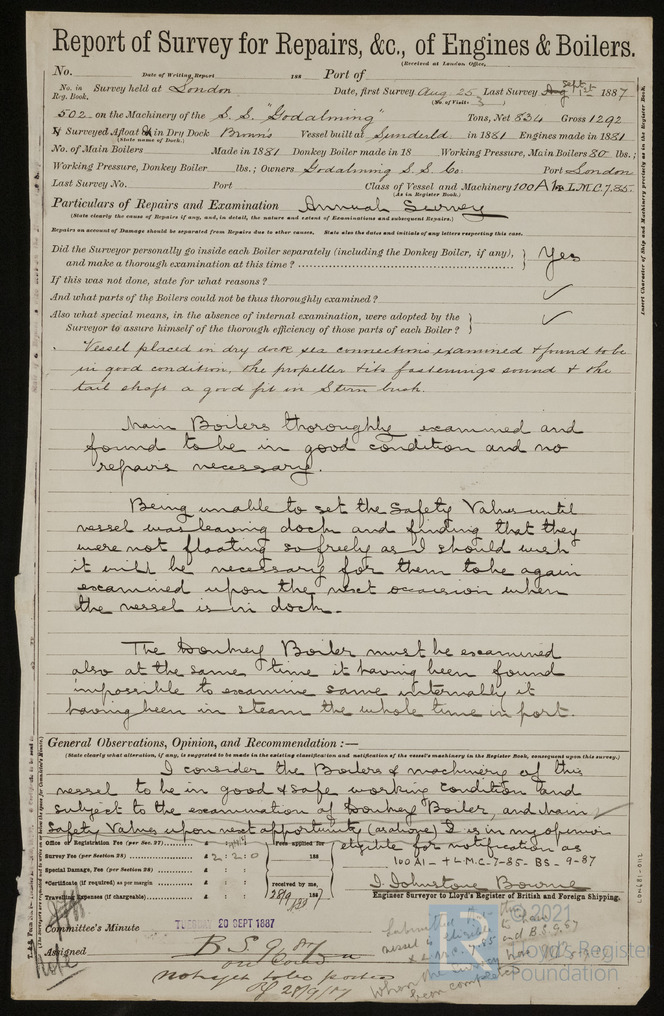 Report of Survey for Repairs, &c., of Engines & Boilers.
(Received at London Office,
No. Date of Writing Report 188 Port of
No. in Reg. Book. Survey held at London Date, first Survey Aug 25 Last Survey Sept 1st 1887
(No. of Visits 3 )
502 on the Machinery of the S.S. "Godalming" Tons, Net 834 Gross 1292
Surveyed Afloat or in Dry Dock Brown's Vessel built at Sunderld in 1881 Engines made in 1881
(State name of Dock.)
No. of Main Boilers Made in 1881 Donkey Boiler made in 18 Working Pressure, Main Boilers 80 lbs.;
Working Pressure, Donkey Boiler lbs.; Owners Godalming S.S. Co. Port London
Last Survey No. Port Class of Vessel and Machinery 100 A1 L.M.C. 7.85.
(As in Register Book.)
Particulars of Repairs and Examination Annual Survey
(State clearly the cause of Repairs if any, and, in detail, the nature and extent of Examinations and subsequent Repairs.)
Repairs on account of Damage should be separated from Repairs due to other causes. State also the dates and initials of any letters respecting this case.
Did the Surveyor personally go inside each Boiler separately (including the Donkey Boiler, if any),
and make a thorough examination at this time? Yes
If this was not done, state for what reasons?
And what parts of the Boilers could not be thus thoroughly examined? ✓
Also what special means, in the absence of internal examination, were adopted by the
Surveyor to assure himself of the thorough efficiency of those parts of each Boiler? ✓
Vessel placed in dry dock sea connections examined & found to be
in good condition, the propeller & its fastenings sound & the
tail shaft a good fit in Stern bush.
Main Boilers thoroughly examined and
found to be in good condition and no
repairs necessary.
Being unable to set the Safety Valves until
vessel was leaving dock and finding that they
were not floating so freely as I should wish
it will be necessary for them to be again
examined upon the next occasion when
the vessel is in dock.
The Donkey Boiler must be examined
also at the same time it having been found
impossible to examine same internally it
having been in steam the whole time in port.
General Observations, Opinion, and Recommendation :—
(State clearly what alteration, if any, is suggested to be made in the existing classification and notification of the vessel's machinery in the Register Book, consequent upon this survey.)
I consider the Boilers & machinery of this
vessel to be in good & safe working condition and
subject to the examination of Donkey Boiler, and Main
Safety Valves upon next opportunity (as above) It is in my opinion
eligible for notification as
100 A1 - + L.M.C. - 7-85 - BS - 9-87
Office or Registration Fee (per Sec. 27) £ : : Fees applied for
Survey Fee (per Section 28) £ 2 : 2 : 0 188
Special Damage, Fee (per Section 28) £ : :
*Certificate (if required) as per margin £ : : received by me,
Travelling Expenses (if chargeable) £ : : 28/9 1887
J. Johnstone Bourne
Engineer Surveyor to Lloyd's Register of British and Foreign Shipping.
Committee's Minute TUESDAY 20 SEPT 1887
Assigned B.S. 9.87
Note
28/9/87
Insert Character of Ship and Machinery precisely as in the Register Book.
LON681-0112
© 2021
Lloyd's Register
Foundation